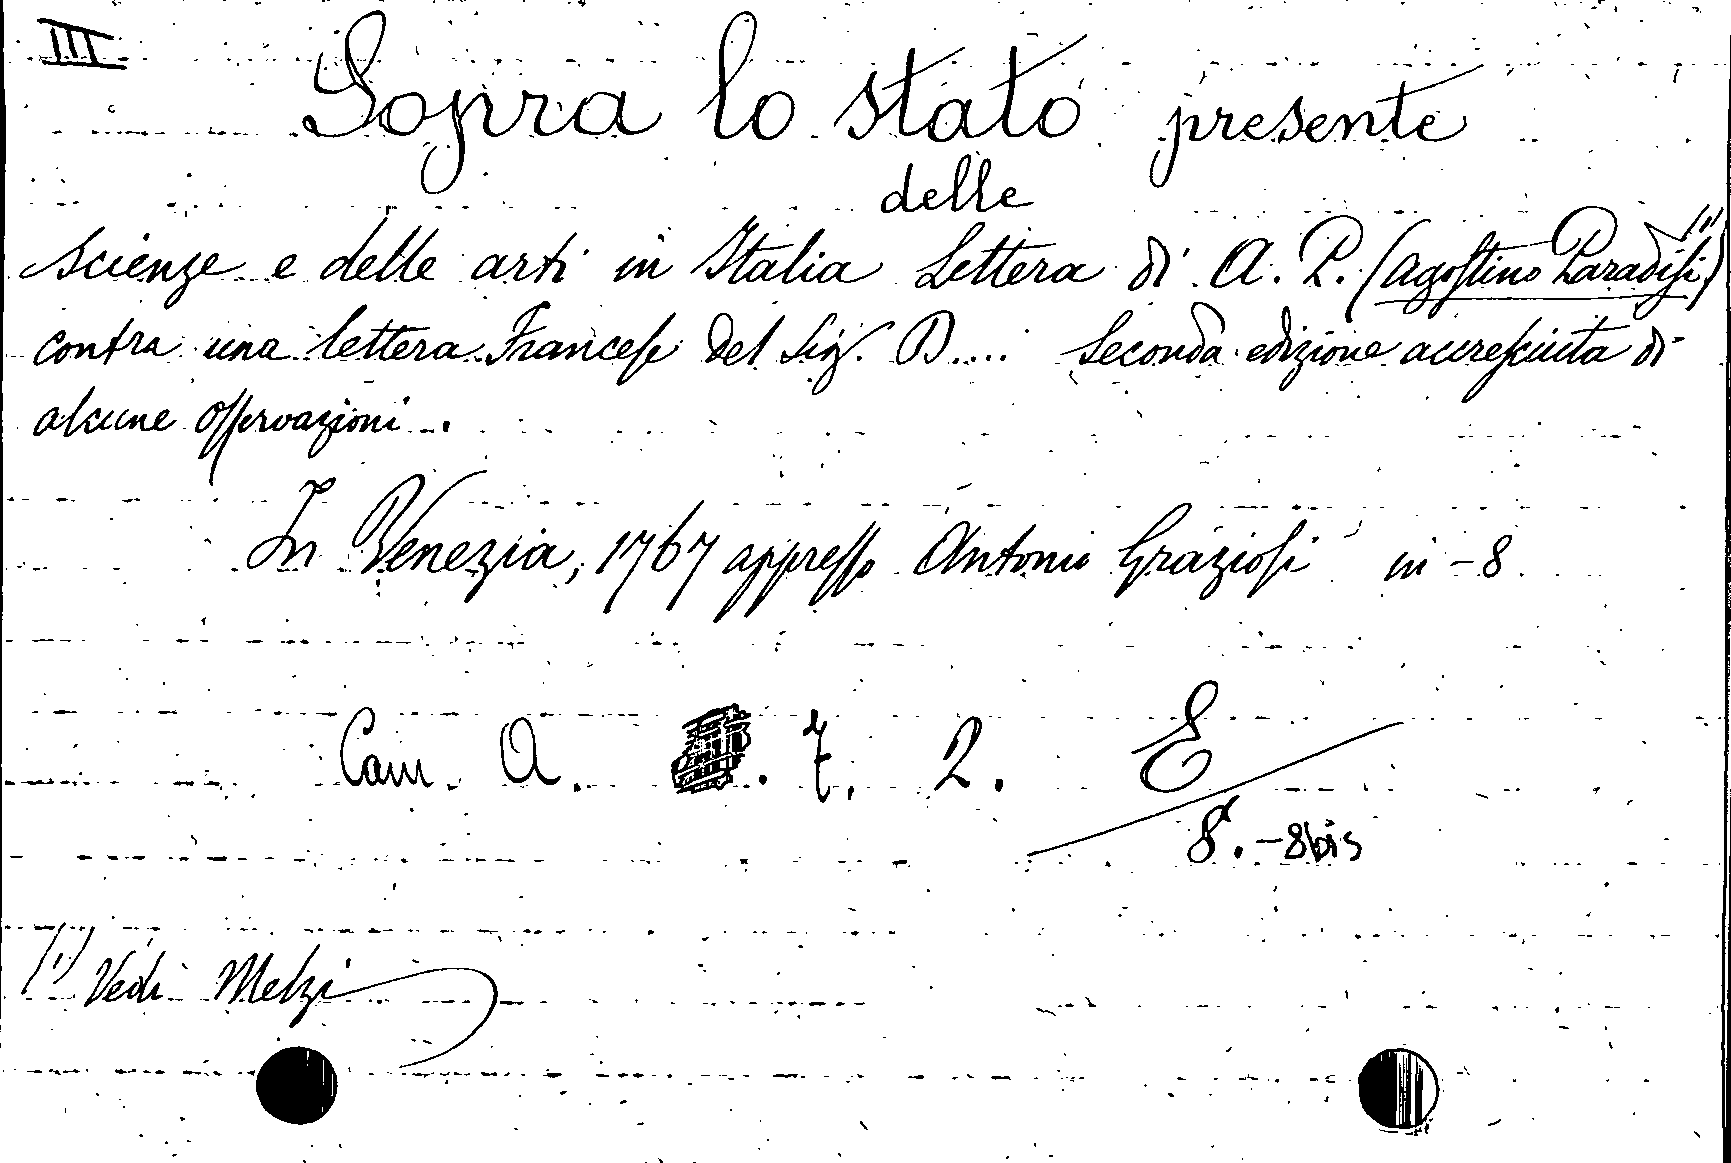 III
Sopra lo stato presente
delle
scienze e delle arti in Italia Lettera di A. P. (Agostino Paradisi) (1)
contra una lettera Francese del Sig. B.... Seconda edizione accresciuta di
alcune osservazioni.
In Venezia, 1767 appresso Antonio Graziosi in-8
Cam. A. . 7. 2. E
8.-8bis
(1) Vedi Melzi